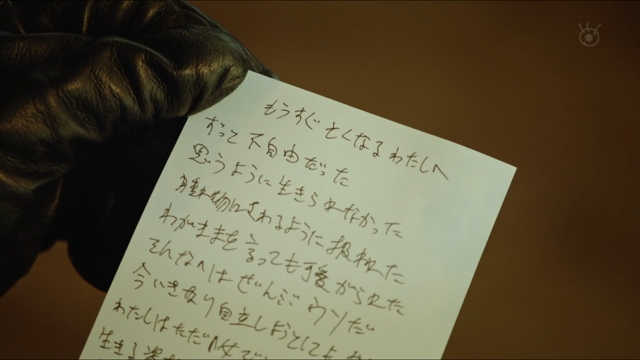 もうすぐ亡くなるわたしへ
ずって不自由だった
思うように生きられなかった
腫れ物にさわるように扱われた
わがままを言っても可愛がられた
そんなのはぜんぶウソだ
今いきなり自立しようとしても
わたしはただの女で
生きる